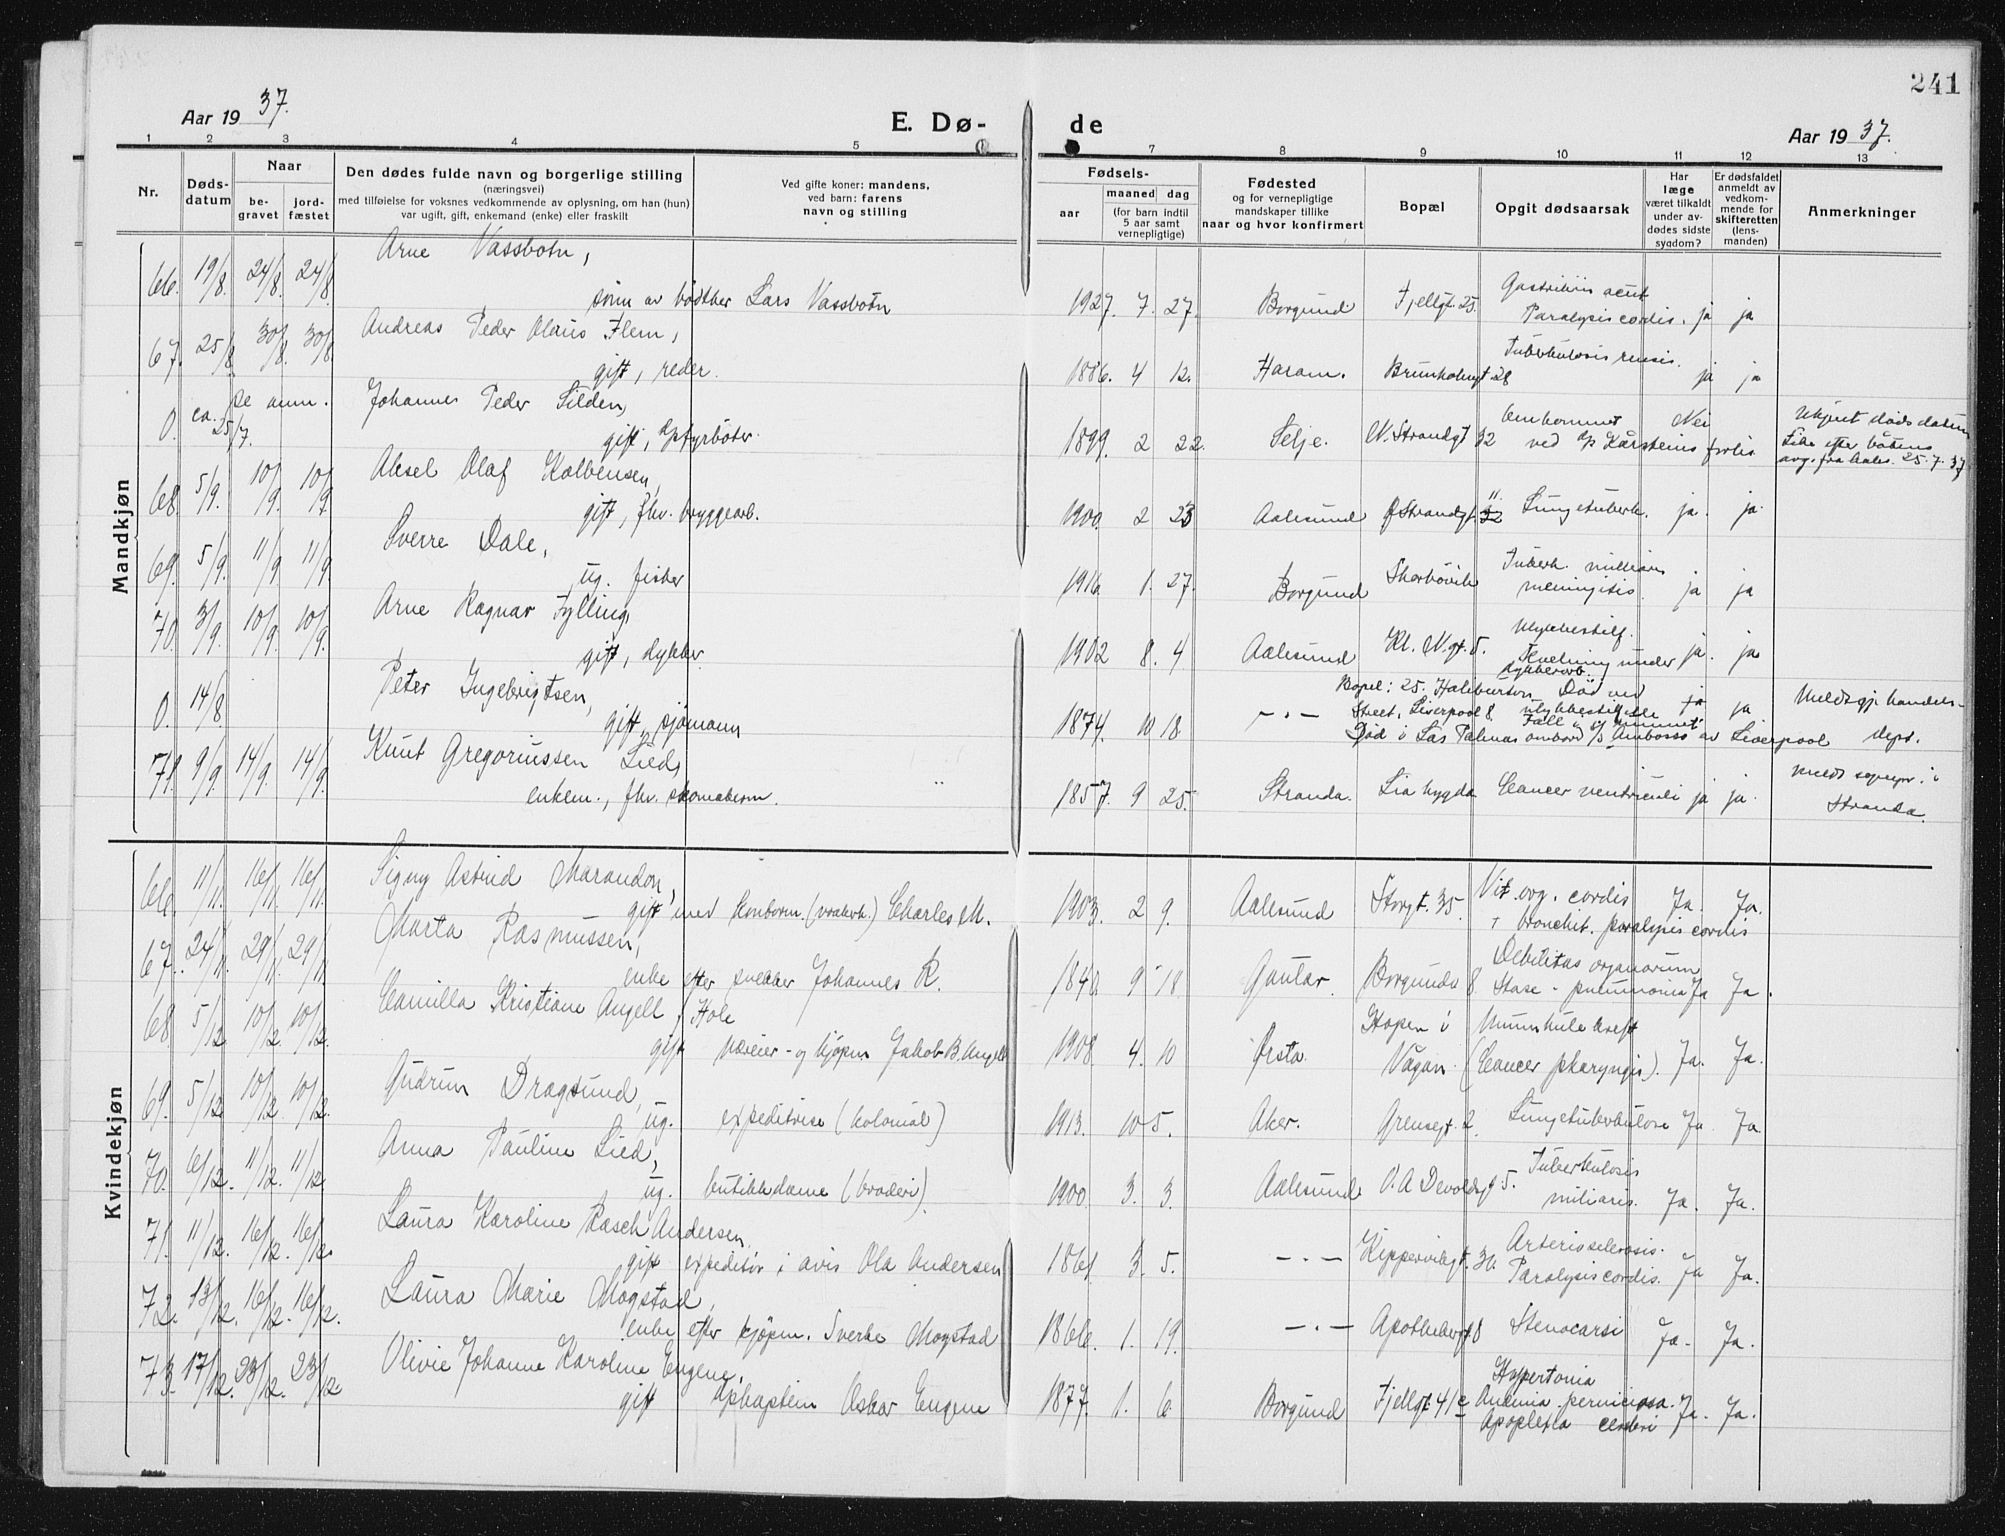 241
Aar 1937.
E. Dø-
de
Aar 1937.
1 2 3 4 5 7 8 9 10 11 12 13
Nr.
Døds-
datum
Naar
be-
gravet
jord-
fæstet
Den dødes fulde navn og borgerlige stilling
(næringsvei)
med tilføielse for voksnes vedkommende av oplysning, om han (hun)
var ugift, gift, enkemand (enke) eller fraskilt
Ved gifte koner: mandens,
ved barn: farens
navn og stilling
Fødsels-
aar
maaned dag
(for barn indtil
5 aar samt
vernepligtige)
Fødested
og for vernepligtige
mandskaper tillike
naar og hvor konfirmert
Bopæl
Opgit dødsaarsak
Har
læge
været tilkaldt
under av-
dødes sidste
sygdom?
Er dødsfaldet
anmeldt av
vedkom-
mende for
skifteretten
(lens-
manden)
Anmerkninger
Mandkjøn
66. 19/8. 24/8. 24/8. Arne Vassbotn,
sønn av bødtker Lars Vassbotn 1927. 7. 27. Borgund Fjellgt. 25. Gastritis acut
Paralysis cordis. ja ja
67. 25/8. 30/8. 30/8. Andreas Peder Olaus Flem,
gift, reder. 1886. 4 12. Haram. Brunholmgt 28 Tuberkulosis renis. ja ja
0. ca. 25/7. se anm. Johannes Peder Silden,
gift, dpfyrbøter. 1899. 2 22. Selje. N. Strandgt 32 Omkommet
ved d/p Kårsteins forlis. Nei
Ukjent dødsdatum
avg. fra Aales. 25.7.37
68. 5/9. 10/9. 10/9. Aksel Olaf Kolbensen,
gift, fhv. bryggearb. 1900. 2 23 Aalesund Ø Strandgt. 11. 32 Lungetuberk. ja. ja.
69. 5/9. 11/9. 11/9. Sverre Dale,
ug. fisker 1916. 1. 27. Borgund Skarbøvik Tuberk. milliaris
meningitis. ja ja
70. 3/9. 10/9. 10/9. Arne Ragnar Fylling,
gift, dykker. 1902 8. 4 Aalesund Kl. N.gt. 5. Ulykkestilf.
Kvelning under
dykkerarb. ja. ja
0. 14/8. Peter Ingebrigtsen,
gift, sjømann 1874. 10 18 — " — Bopel: 25. Haliburton
Street, Liverpool 8. Død ved
ulykkestilfelle
Fall i rummet ja ja
Død i Las Palmas ombord i s/s Ambosso av Liverpool
Meldt gj. handels-
dept.
71. 9/9. 14/9. 14/9. Knut Gregoriussen Lied,
enkem., fhv. skomakerm. 1857. 9 25. Stranda. Liabygda Cancer ventriculi ja ja.
Meldt sognepr. i
Stranda.
Kvindekjøn
66. 11/11. 16/11. 16/11. Signy Astrid Marandon,
gift med konborm. (vrakerk.) Charles M. 1903. 2 9. Aalesund Storgt. 35. Vit. org. cordis
+ bronchit. paralysis cordis Ja. Ja.
67. 24/11. 29/11. 29/11. Marta Rasmussen,
enke efter snekker Johannes R. 1840. 9 18 Gautar. Borgundv 8. Debilitas organorum
Stase - pneumonia Ja Ja.
68. 5/12. 10/12. 10/12. Camilla Kristiane Angell f. Hole
gift væreier- og kjøpm Jakob B. Angell 1908. 4. 10 Ørsta Hopen i
Vågan. Munnhulekreft
(Cancer pharyngis). Ja. Ja.
69. 5/12 10/12. 10/12. Gudrun Dragsund,
ug. expeditrise (kolonial) 1913. 10 5. Aker. Grensegt. 2. Lungetuberkulose Ja. Ja.
70. 6/12. 11/12. 11/12. Anna Pauline Lied,
ug. butikkdame (broderi). 1900. 3. 3. Aalesund O. A Devoldsgt 5. Tuberkulosis
miliaris. Ja. Ja.
71. 11/12. 16/12. 16/12. Laura Karoline Rasch Andersen.
gift expeditør i avis Ola Andersen 1861. 3. 5. — " — Kippervikgt. 36. Arteriosclerosis.
Paralysis cordis. Ja Ja.
72. 13/12. 16/12. 16/12. Laura Marie Mogstad,
enke efter kjøpm. Sverke Mogstad 1866. 1. 19. — " — Apothekergt 8 Stenocarsi Ja. Ja.
73. 17/12. 23/12. 23/12 Olivie Johanne Karoline Engene,
gift dpkaptein Oskar Engene 1877. 1. 6. Borgund Fjellgt 41/c Hypertonia
Anæmia perniciosa.
Apoplexia cerebri Ja. Ja.